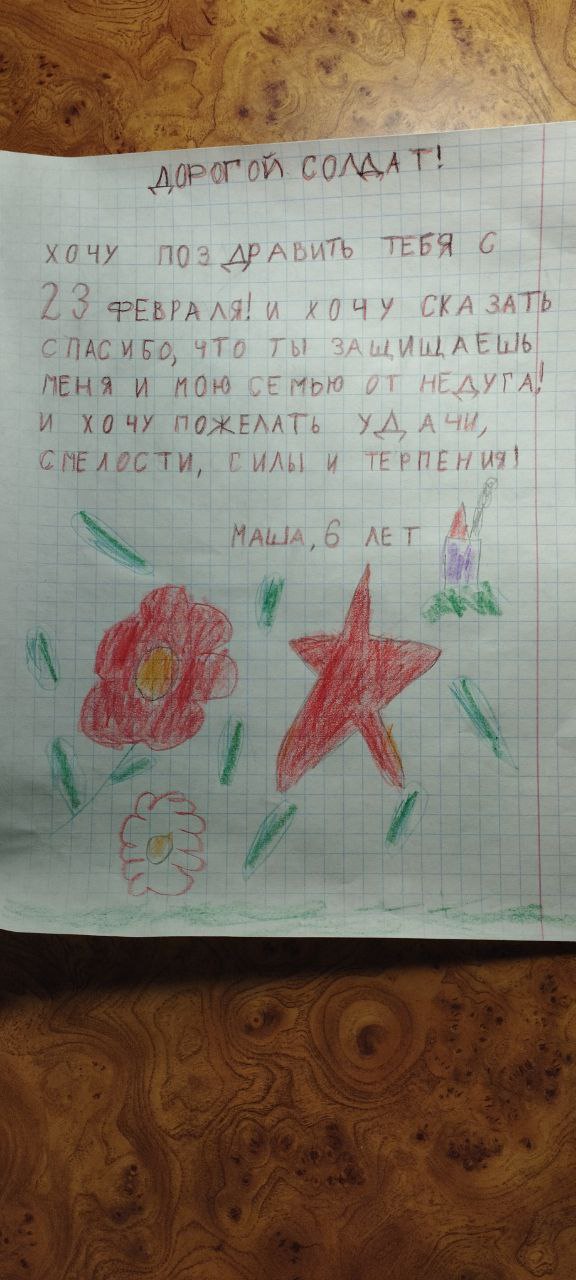 ДОРОГОЙ СОЛДАТ!
ХОЧУ ПОЗДРАВИТЬ ТЕБЯ С
23 ФЕВРАЛЯ! И ХОЧУ СКАЗАТЬ
СПАСИБО, ЧТО ТЫ ЗАЩИЩАЕШЬ
МЕНЯ И МОЮ СЕМЬЮ ОТ НЕДУГА!
И ХОЧУ ПОЖЕЛАТЬ УДАЧИ,
СМЕЛОСТИ, СИЛЫ И ТЕРПЕНИЯ!
МАША, 6 ЛЕТ